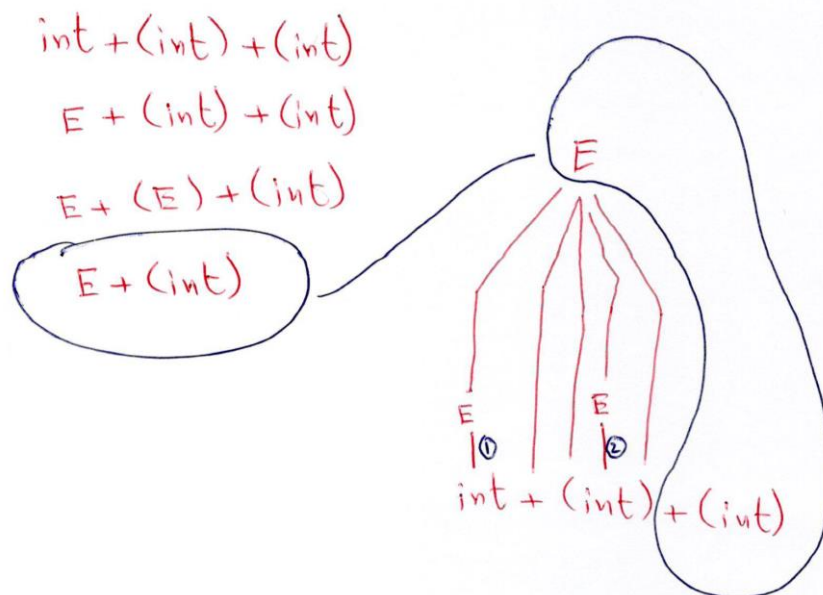 int + (int) + (int)
E + (int) + (int)
E + (E) + (int)
E + (int)
E
E E
① ②
int + (int) + (int)